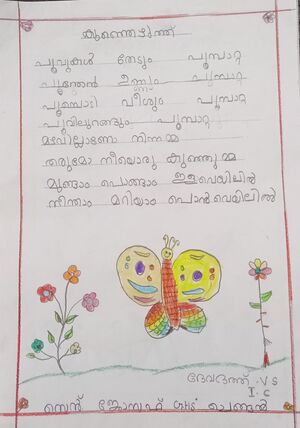 കുഞ്ഞെഴുത്ത്
പൂവുകൾ തേടും പൂമ്പാറ്റ
പൂന്തേൻ ഉണ്ണും പൂമ്പാറ്റ
പൂമ്പൊടി വീശും പൂമ്പാറ്റ
പൂവിലുറങ്ങും പൂമ്പാറ്റ
മഴവില്ലാണോ നിന്നമ്മ
തരുമോ നീയൊരു കുഞ്ഞുമ്മ
മുങ്ങാം പൊങ്ങാം ഇളവെയിലിൽ
നീന്താം മറിയാം പൊൻവെയിലിൽ
ദേവദത്ത് .V.S
I.C
സെന്റ്